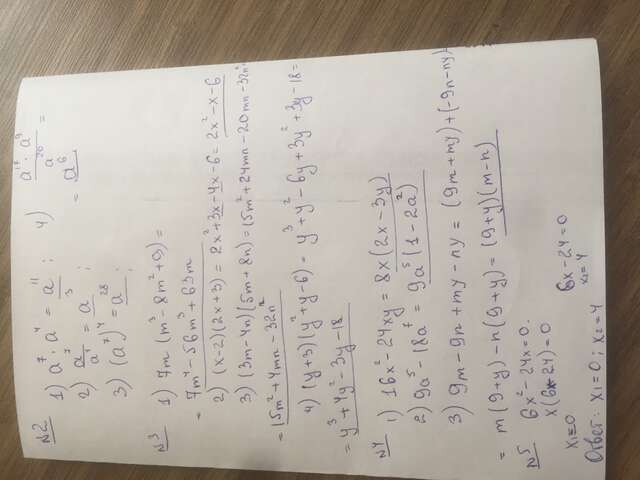 №2
1) a⁷ · a⁴ = a¹¹ ; 4) (a¹⁷ · a⁹)/a²⁰ =
= a⁶
2) a⁷/a⁴ = a³ ;
3) (a⁷)⁴ = a²⁸ ;
№3
1) 7m (m³ - 8m² + 9) =
= 7m⁴ - 56m³ + 63m
2) (x-2)(2x+3) = 2x² + 3x - 4x - 6 = 2x² - x - 6
3) (3m-4n)(5m+8n) = 15m² + 24mn - 20mn - 32n² =
= 15m² + 4mn - 32n²
4) (y+3)(y²+y-6) = y³ + y² - 6y + 3y² + 3y - 18 =
= y³ + 4y² - 3y - 18
№4
1) 16x² - 24xy = 8x (2x - 3y)
2) 9a⁵ - 18a⁷ = 9a⁵ (1 - 2a²)
3) 9m - 9n + my - ny = (9m + my) + (-9n - ny)
= m(9+y) - n(9+y) = (9+y)(m-n)
№5 6x² - 24x = 0.
x(6x-24) = 0
x₁ = 0 6x - 24 = 0
x₂ = 4
Ответ: x₁ = 0 ; x₂ = 4